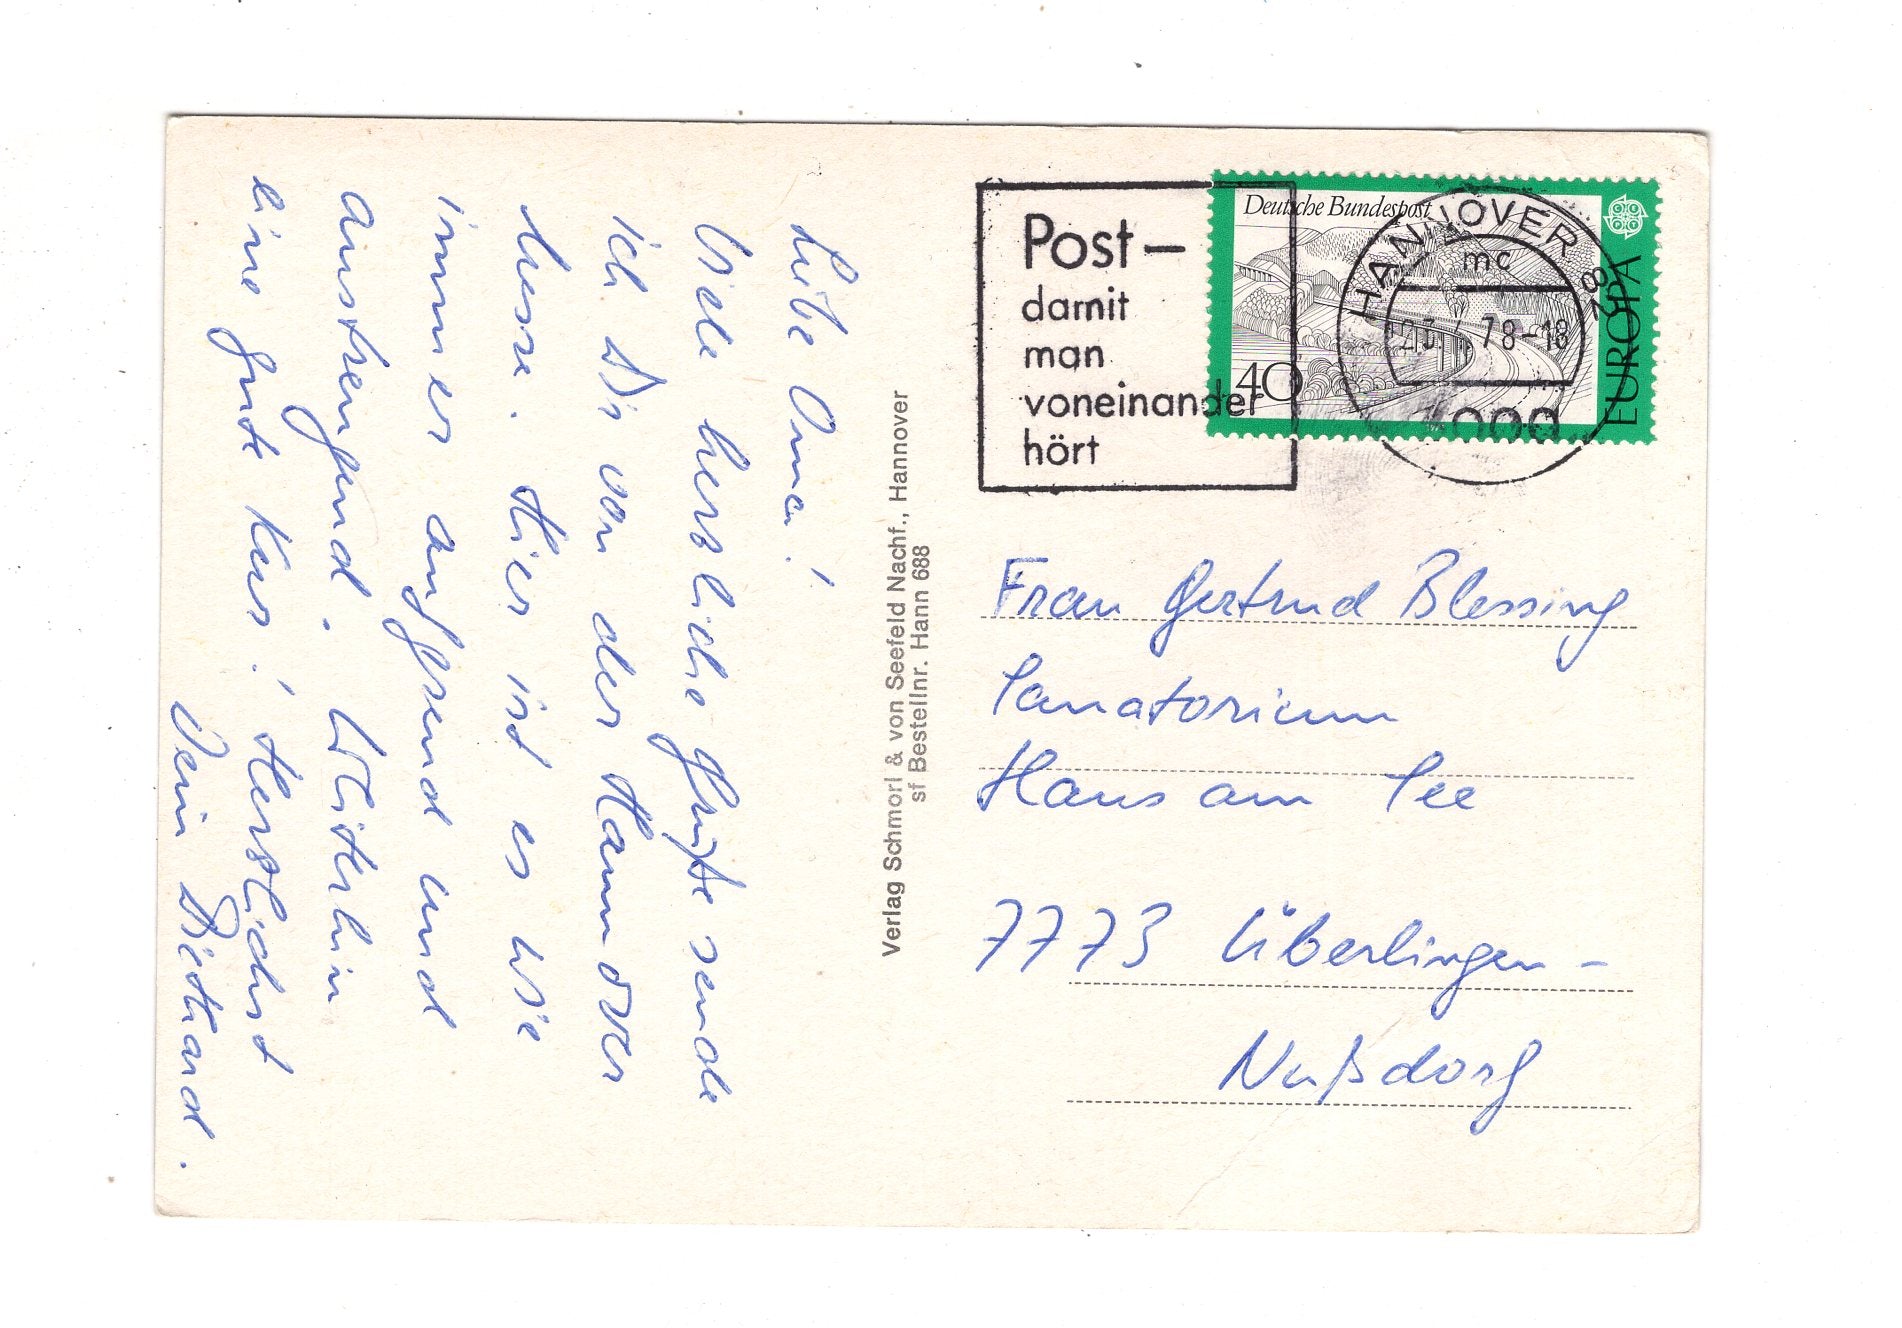 Liebe Oma!
Viele herzliche Grüße sende
ich Dir von der Hannover
Messe. Hier ist es wie
immer aufregend und
anstrengend. Weiterhin
eine gute Kur! Herzlichst
Dein Diethard.
Verlag Schmorl & von Seefeld Nachf., Hannover
sf Bestellnr. Hann 688
Post –
damit
man
voneinander
hört
Deutsche Bundespost
40
EUROPA
HANNOVER 82
mc
78-18
Frau Gertrud Blessing
Sanatorium
Haus am See
7773 Überlingen -
Nußdorf